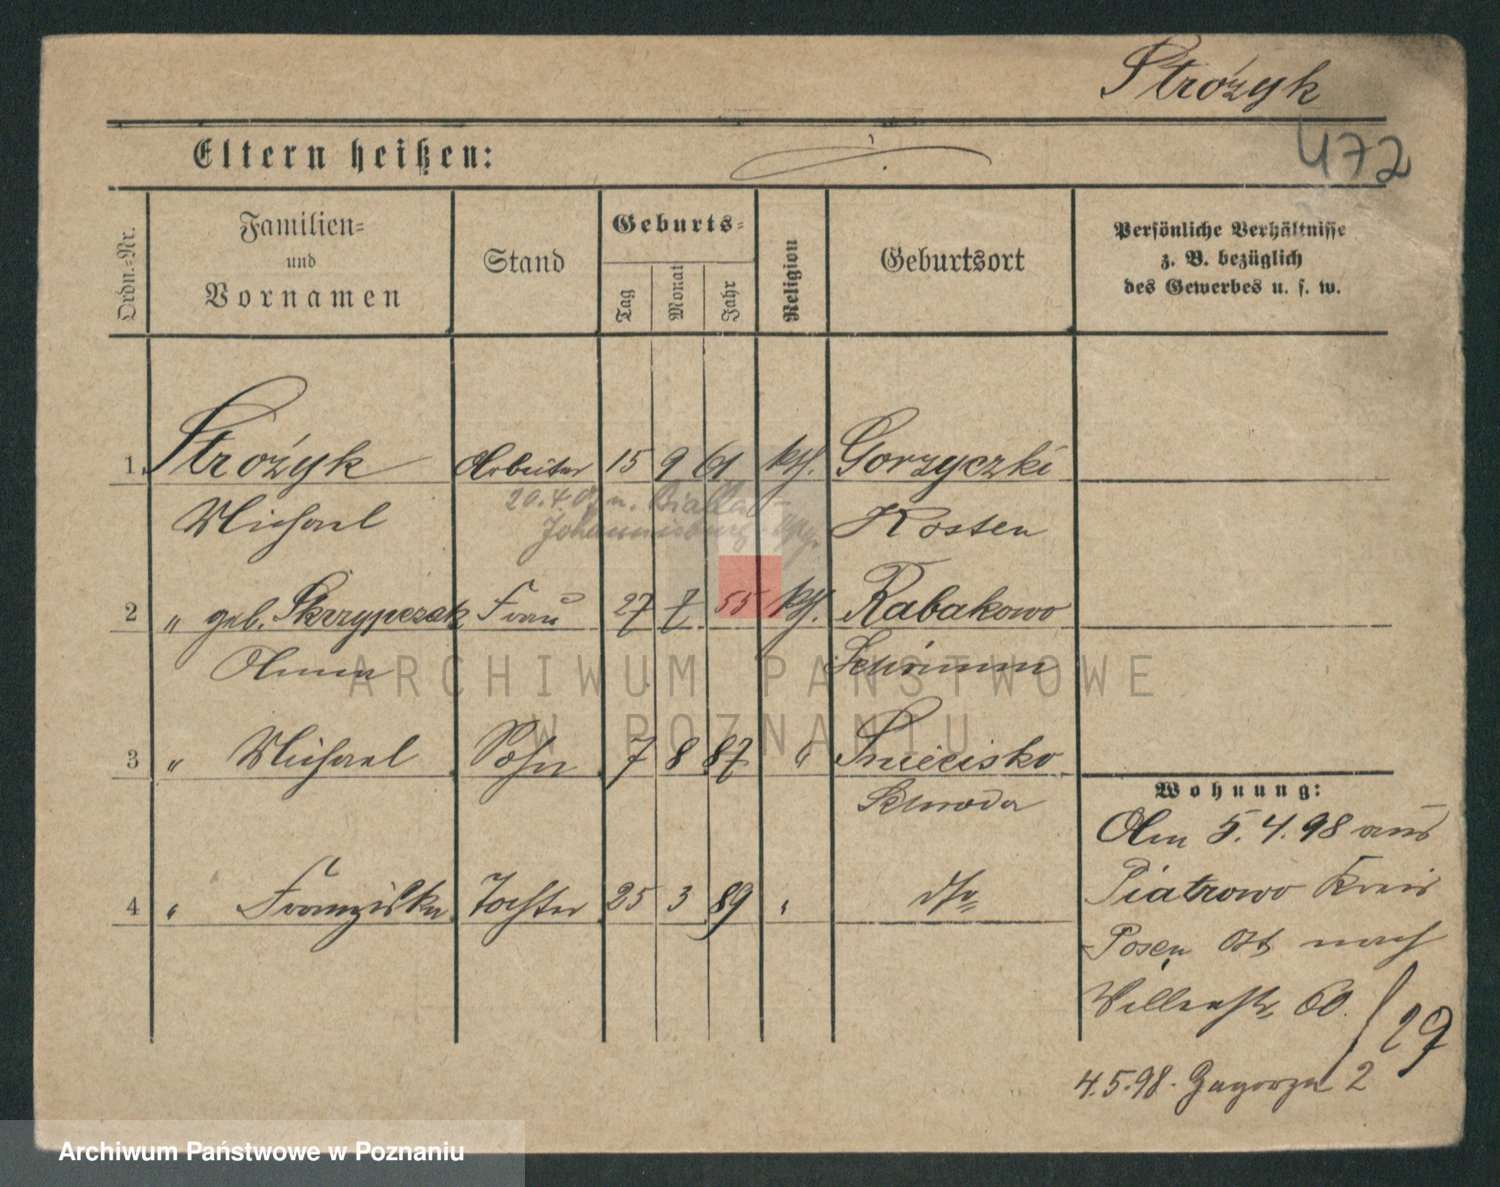 Stróżyk
472
Eltern heißen:
Ordn.-Nr.
Familien-
und
Vornamen
Stand
Geburts-
Tag
Monat
Jahr
Religion
Geburtsort
Persönliche Verhältnisse
z. B. bezüglich
des Gewerbes u. s. w.
1. Stróżyk Arbeiter 15 9 61 kth. Gorzyczki
20.4.07 n. Bialla-
Michael Kosten
Johannisburg
2 " geb. Skrzypczak Frau 27 7 55 kth. Rabakowo
Anna Schrimm
3 " Michael Sohn 7 8 87 " Sniecisko
Schroda
4 " Franziska Tochter 25 3 89 " dto
Wohnung:
Am 5.4.98 aus
Piatrowo Kreis
Posen Ost nach
60. / 29
4.5.98. Zagorze 2
ARCHIWUM PAŃSTWOWE
W POZNANIU
Archiwum Państwowe w Poznaniu